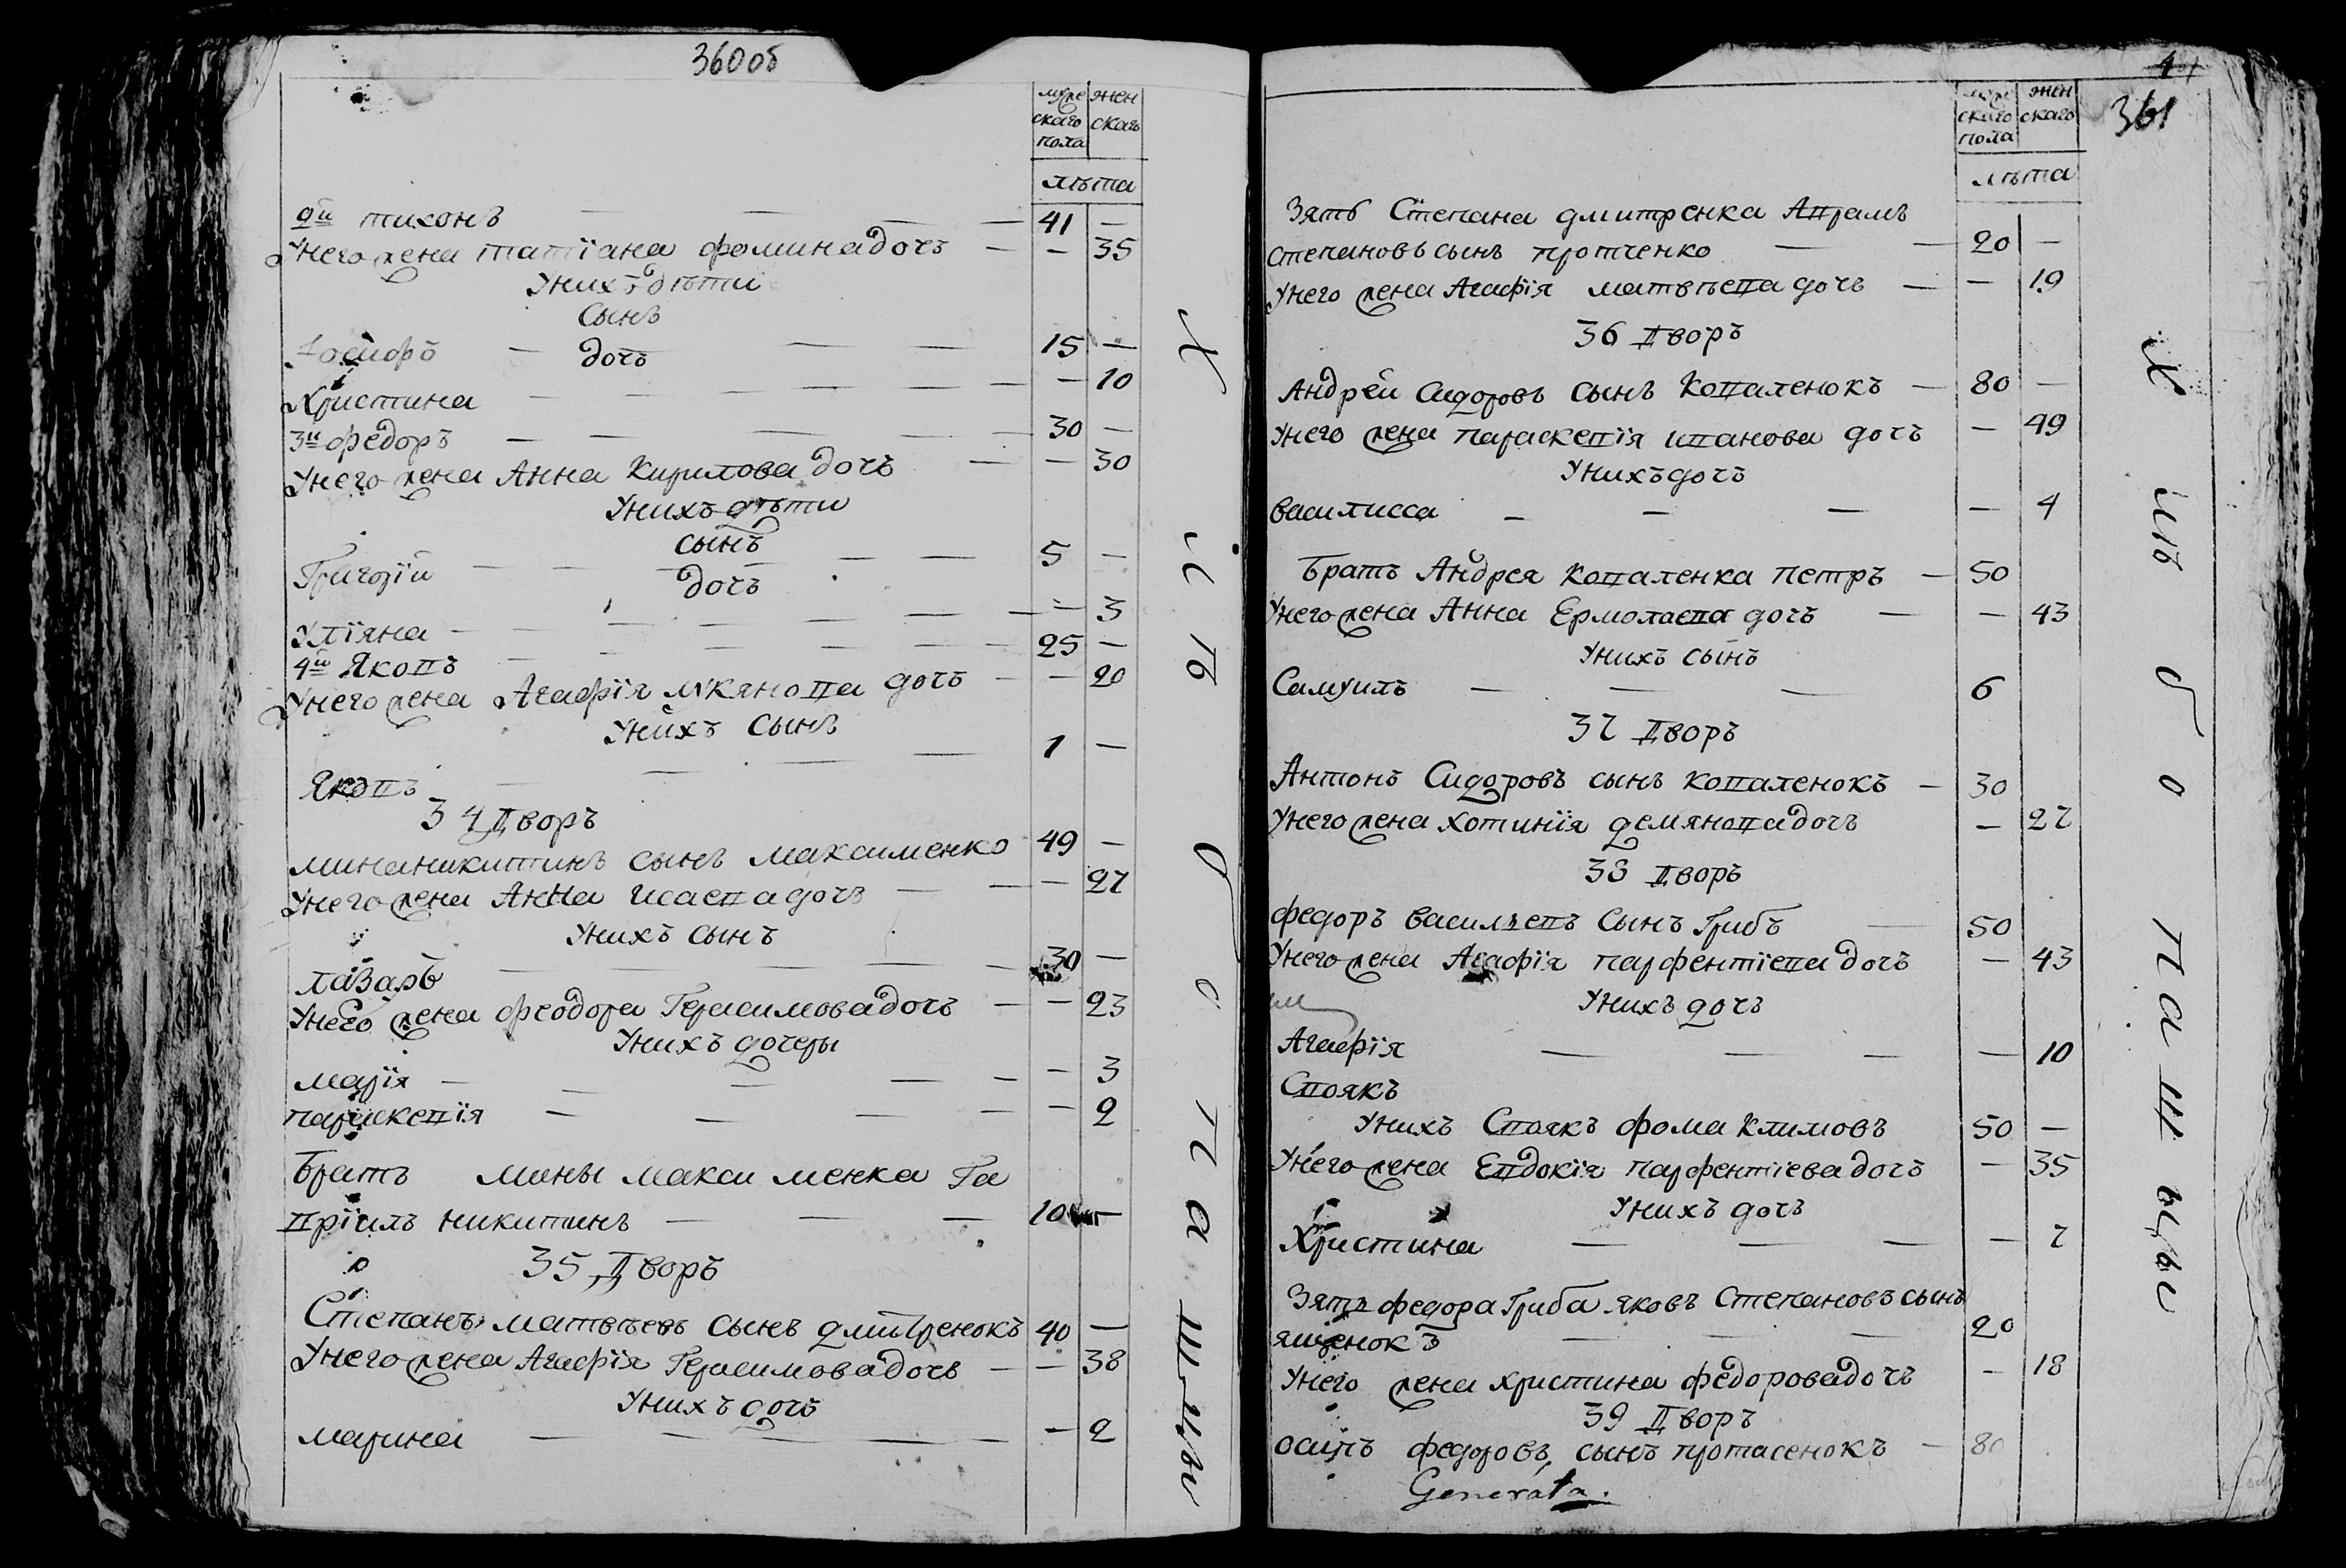 360об
муже жен
скаго скаго
пола
лѣта
2й тихонъ — — — — 41 —
Унего жена татїана фомина дочъ — — 35
Унихъ дѣти
Сынъ
15 —
дочъ
Христина — — — — — 10
3й федоръ — — — — 30 —
Унего жена Анна Кирилова дочъ — — 30
Унихъ дѣти
сынъ
Григорїй — — — — 5 —
дочъ
Улїяна — — — — — 3
4й Яковъ — — — — 25 —
Унего жена Агафїя лукянова дочъ — — 20
Унихъ сынъ
Яковъ — — — — 1 —
34 Дворъ
мина никитинъ сынъ максименко 49 —
Унего жена Анна исаева дочъ — — 27
Унихъ сынъ
лазаръ — — — — 30 —
Унего жена феодора Герасимова дочъ — — 23
Унихъ дочеры
марїя — — — — — 3
параскевїя — — — — — 2
Братъ мины максименка Га
врїилъ никитинъ — — — 10 —
35 Дворъ
Степанъ матвѣевъ сынъ дмитренокъ 40 —
Унего жена Агафїя Герасимова дочъ — — 38
Унихъ дочъ
марина — — — — — 2
Хлѣбопашцы
361
муже жен
скаго скаго
пола
лѣта
Зять Степана дмитренка Аврамъ
степановъ сынъ протченко — — 20 —
Унего жена Агафїя матвѣева дочъ — — 19
36 Дворъ
Андрей Сидоровъ сынъ Коваленокъ — 80 —
Унего жена параскевїя иванова дочъ — 49
Унихъ дочъ
василисса — — — — 4
Братъ Андрея коваленка петръ — 50
Унего жена Анна Ермолаева дочъ — — 43
Унихъ сынъ
Самуилъ — — — 6
37 Дворъ
Антонъ Сидоровъ сынъ коваленокъ — 30
Унего жена хотинїя демянова дочъ — 27
38 Дворъ
федоръ василъевъ сынъ Грибъ — 50
Унего жена Агафїя парфентїева дочъ — 43
Унихъ дочъ
Агафїя — — — — 10
Своякъ
Унихъ Своякъ фома климовъ 50 —
Унего жена Евдокїя парфентїева дочъ — 35
Унихъ дочъ
Христина — — — — 7
Зять федора Гриба яковъ Степановъ сынъ
ященокъ — — — 20
Унего жена христина федорова дочъ — 18
39 Дворъ
осипъ федоровъ сынъ протасенокъ — 80
Generata.
Хлѣбопашцы